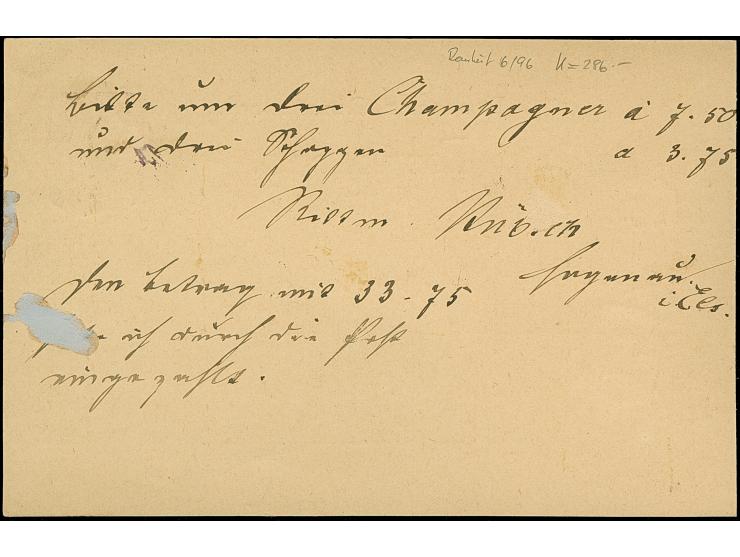 6/96 K = 286.-
Bitte um drei Champagner à 7.50
und drei Schoppen a 3.75
Rittm.
Hagenau
i Els.
Den Betrag mit 33-75
ich durch die Post
eingezahlt.